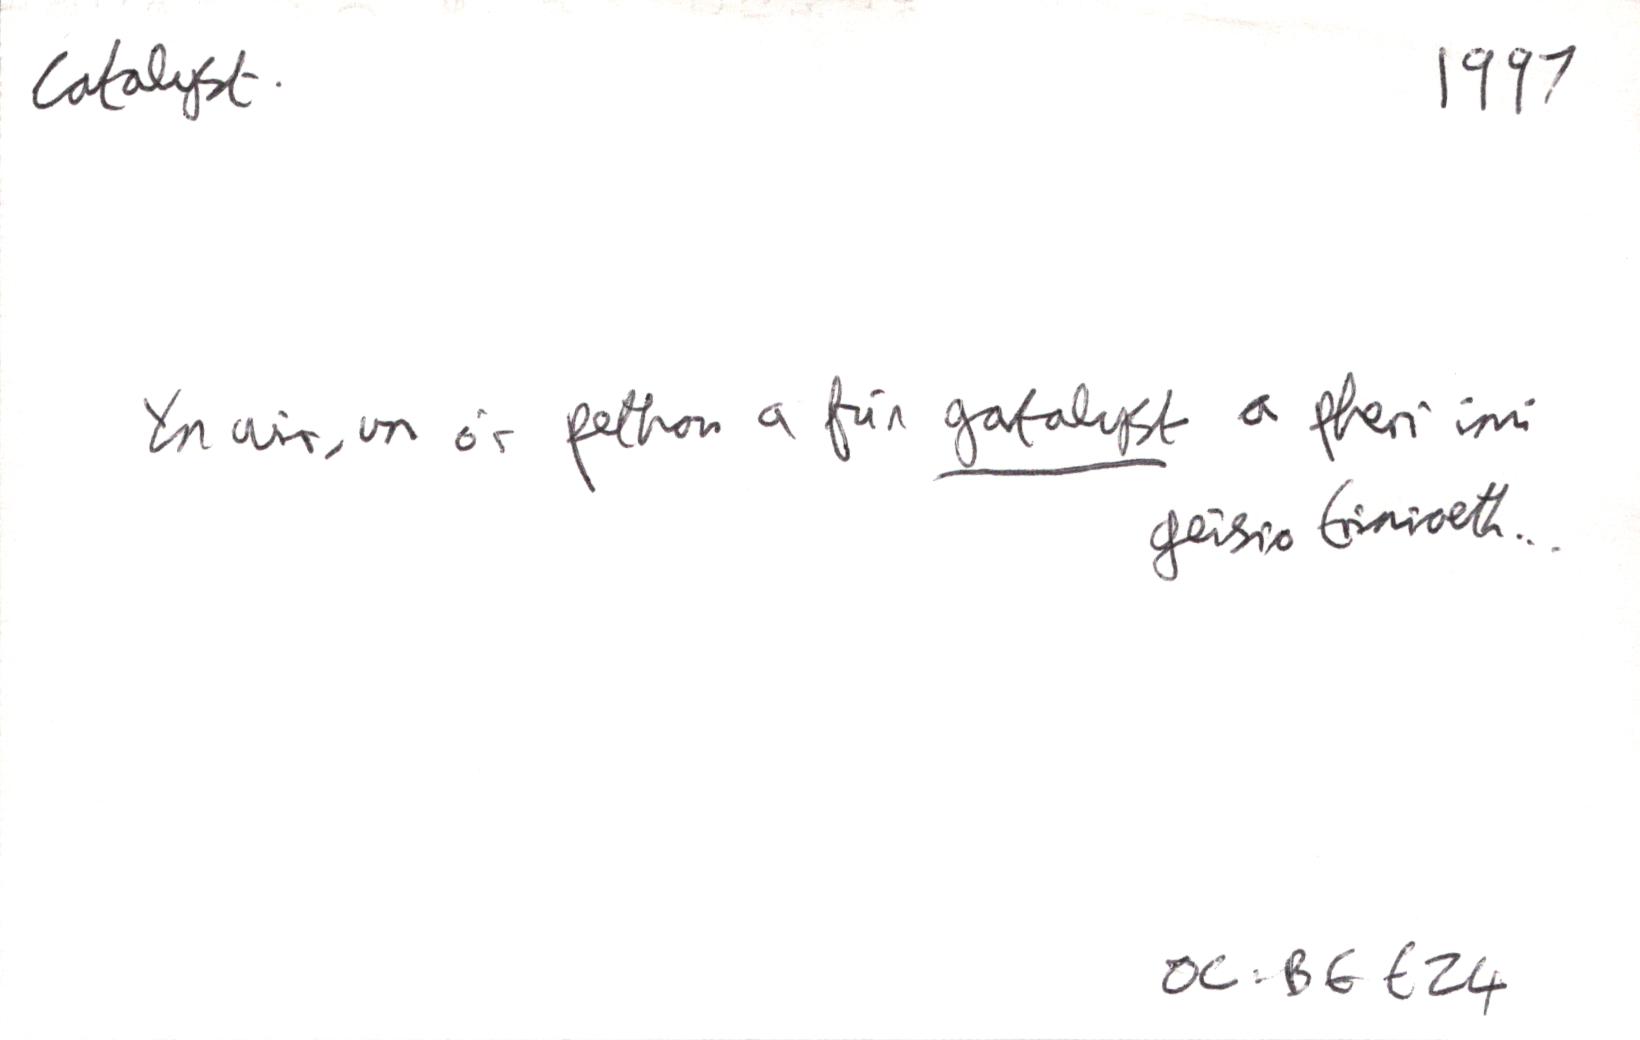 Catalyst. 1997
Yn wir, un o'r pethau a fu'n gatalyst a pheri imi
geisio
OC:BG t24